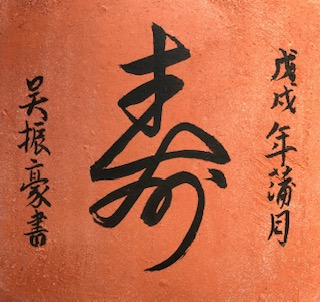 戊戌年蒲月
寿
吴振豪書